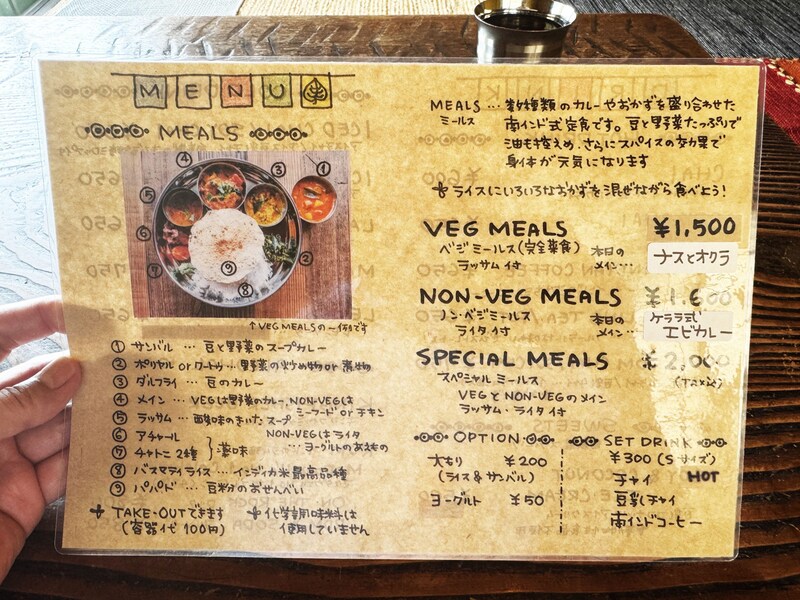 MENU
MEALS
① ② ③ ④ ⑤ ⑥ ⑦ ⑧ ⑨
↑VEG MEALSの一例です
① サンバル … 豆と野菜のスープカレー
② ポリヤル or クートゥ … 野菜の炒め物 or 煮物
③ ダルフライ … 豆のカレー
④ メイン … VEGは野菜のカレー、NON-VEGは
シーフード or チキン
⑤ ラッサム … 酸味のきいたスープ
⑥ アチャール
⑦ チャトニ2種 } 薬味
NON-VEGはライタ
… ヨーグルトのあえもの
⑧ バスマティライス … インディカ米最高品種
⑨ パパド … 豆粉のおせんべい
TAKE・OUTできます
(容器代 100円)
化学調味料は
使用していません
MEALS … 数種類のカレーやおかずを盛り合わせた
ミールス 南インド式定食です。豆と野菜たっぷりで
油も控えめ、さらにスパイスの効果で
身体が元気になります
ライスにいろいろなおかずを混ぜながら食べよう!
VEG MEALS ¥1,500
ベジミールス(完全菜食)
ラッサム付
本日の
メイン… ナスとオクラ
NON-VEG MEALS ¥1,600
ノン・ベジミールス
ライタ付
本日の
メイン… ケララ式
エビカレー
SPECIAL MEALS ¥2,000
スペシャルミールス (TAX込)
VEGとNON-VEGのメイン
ラッサム・ライタ付
OPTION
大もり ¥200
(ライス&サンバル)
ヨーグルト ¥50
SET DRINK
¥300 (Sサイズ)
チャイ HOT
豆乳チャイ
南インドコーヒー